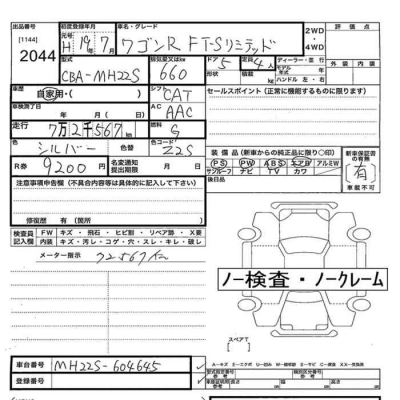 出品番号 初度登録年月 車名・グレード 2WD ・ 4WD 評価点
[1144] 元号 H 19年 7月 ワゴンR FT-Sリミテッド
2044 型式 排気量又はkw ドア 定員 ディーラー・並行
CBA-MH22S 660 5 4人 モデル年式
形状 積載 kg ハンドル 左・右
車歴 シフト CAT セールスポイント(正常に機能するものに限り)
自家用・( )
車検満了日 AC AAC
年 月( 日)
走行 7万2千567km 燃料 G
色 シルバー 色替 カラーNo. Z2S
R券 9200円 名変通知提出期限 月 日
装備品(新車からの純正品に限り○印) 新車保証書の有無
PS PW ABS エアB アルミW
サンルーフ ナビ TV カワ
有
後日品
記載不可
注意事項申告欄(不具合内容等は具体的に記入して下さい)
修復歴 有(箇所 )
検査員記入欄 FW キズ・飛石・ヒビ割・リペア跡・X要
内装 キズ・汚レ・コゲ・穴・スレ・キレ・破レ
メーター指示 72567km
ノー検査・ノークレーム
スペアT
車台番号 MH22S-604645
登録番号